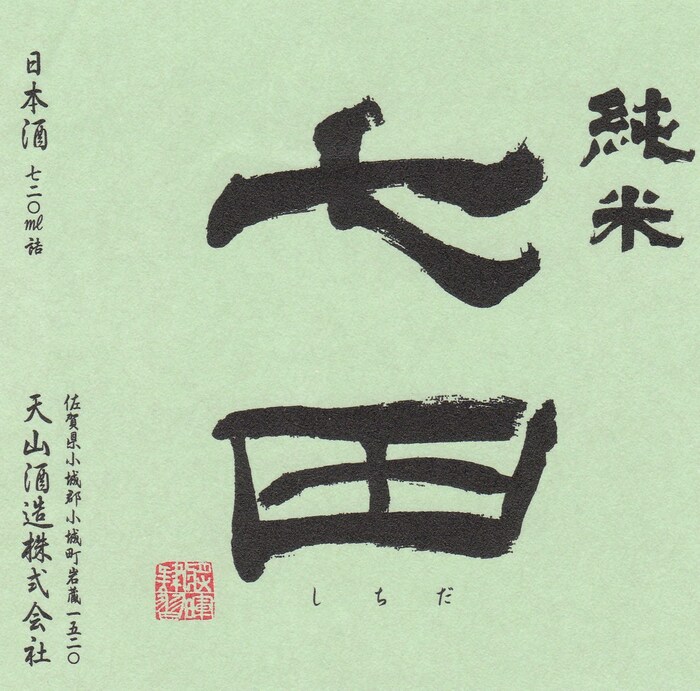 純米
七田
しちだ
日本酒 七二〇ml詰
佐賀県小城郡小城町岩蔵一五二〇
天山酒造株式会社